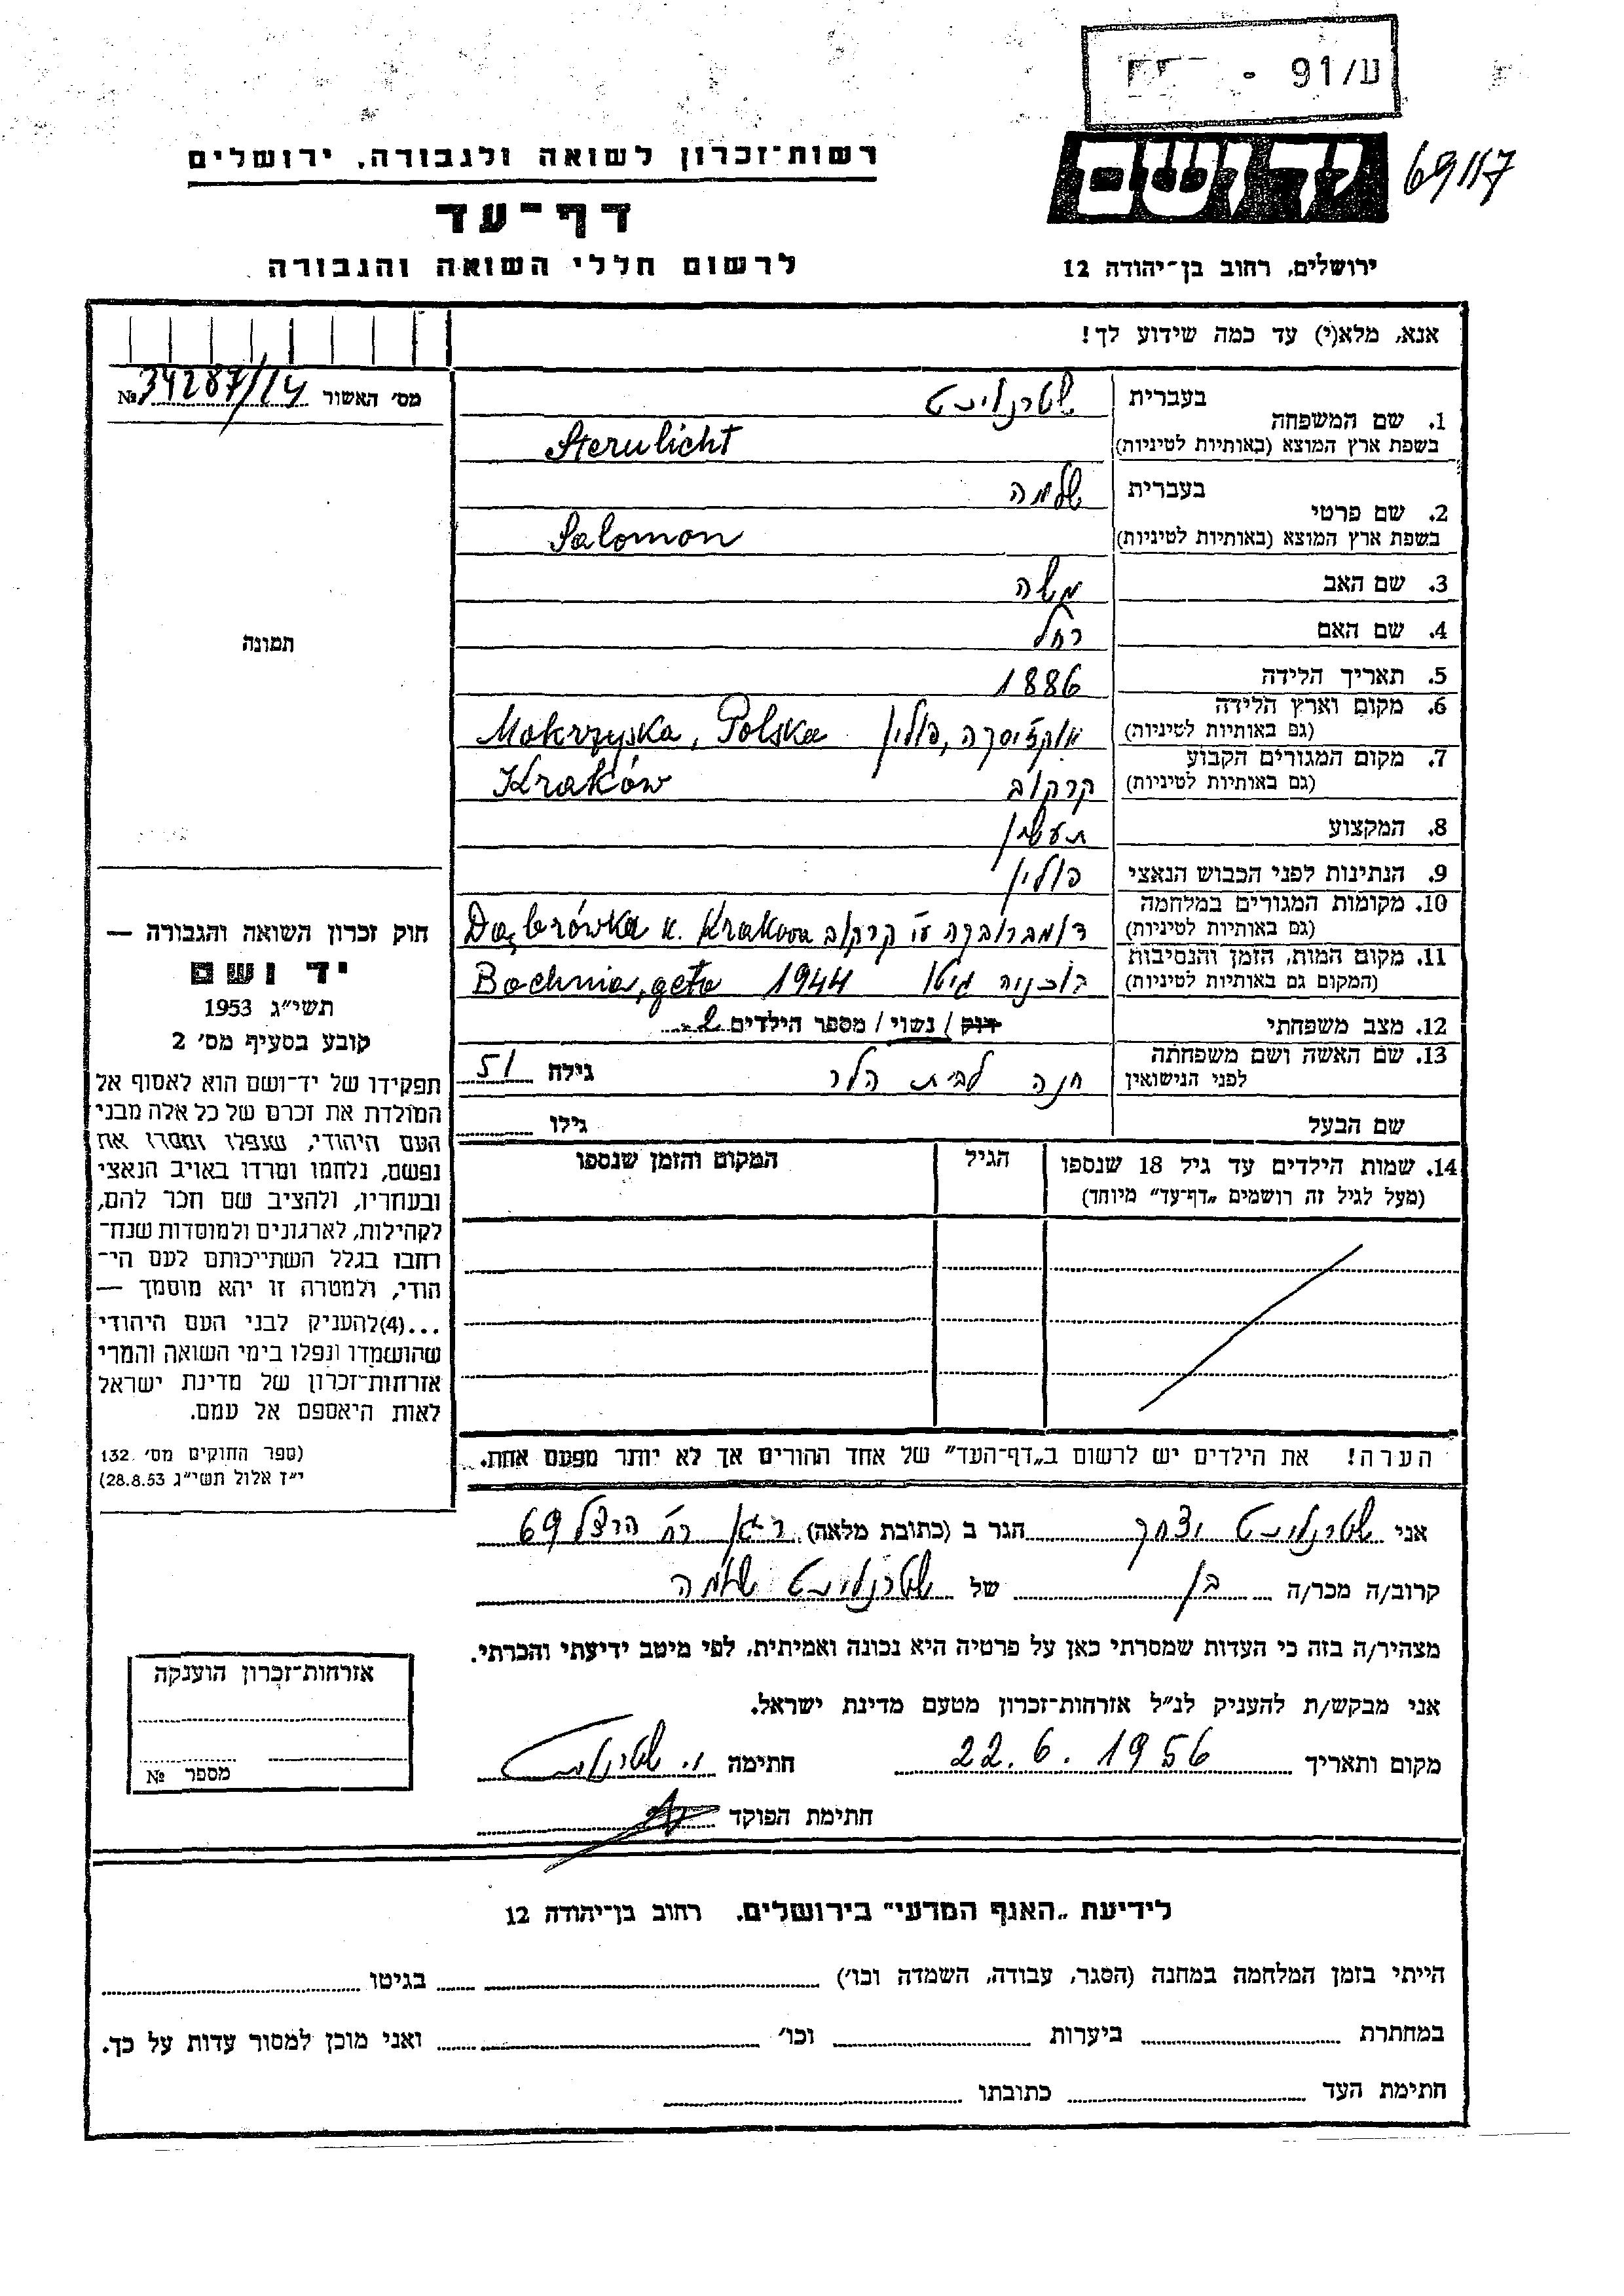 ע/91 -
יד ושם
69/17
רשות־זכרון לשואה ולגבורה, ירושלים
דף־עד
לרשום חללי השואה והגבורה
ירושלים, רחוב בן־יהודה 12
אנא, מלא(י) עד כמה שידוע לך!
מס׳ האשור № 34287/14
1. שם המשפחה
בעברית שטרנליכט
בשפת ארץ המוצא (באותיות לטיניות) Sternlicht
2. שם פרטי
בעברית שלמה
בשפת ארץ המוצא (באותיות לטיניות) Salomon
3. שם האב משה
4. שם האם רחל
5. תאריך הלידה 1886
6. מקום וארץ הלידה
(גם באותיות לטיניות) מוקז'יסקה, פולין Mokrzyska, Polska
7. מקום המגורים הקבוע
(גם באותיות לטיניות) קרקוב Kraków
8. המקצוע תעשין
9. הנתינות לפני הכבוש הנאצי פולין
10. מקומות המגורים במלחמה
(גם באותיות לטיניות) דומברובקה ע"י קרקוב Dąbrówka k. Krakowa
11. מקום המות, הזמן והנסיבות
(המקום גם באותיות לטיניות) בוכניה גיטו 1944 Bochnia, geto
12. מצב משפחתי רוק / נשוי / מספר הילדים 2
13. שם האשה ושם משפחתה
לפני הנישואין חנה לבית הלר גילה 51
שם הבעל גילו
14. שמות הילדים עד גיל 18 שנספו הגיל המקום והזמן שנספו
(מעל לגיל זה רושמים „דף־עד” מיוחד)
הערה! את הילדים יש לרשום ב„דף־העד” של אחד ההורים אך לא יותר מפעם אחת.
תמונה
חוק זכרון השואה והגבורה —
יד ושם
תשי״ג 1953
קובע בסעיף מס׳ 2
תפקידו של יד־ושם הוא לאסוף אל
המולדת את זכרם של כל אלה מבני
העם היהודי, שנפלו ומסרו את
נפשם, נלחמו ומרדו באויב הנאצי
ובעוזריו, ולהציב שם וזכר להם,
לקהילות, לארגונים ולמוסדות שנח־
רבו בגלל השתייכותם לעם הי־
הודי, ולמטרה זו יהא מוסמך —
...(4)להעניק לבני העם היהודי
שהושמדו ונפלו בימי השואה והמרי
אזרחות־זכרון של מדינת ישראל
לאות היאספם אל עמם.
(ספר החוקים מס׳ 132
י״ז אלול תשי״ג 28.8.53)
אני שטרנליכט יצחק הגר ב (כתובת מלאה) ר"גן רח' הרצל 69
קרוב/ה מכר/ה בן של שטרנליכט שלמה
מצהיר/ה בזה כי העדות שמסרתי כאן על פרטיה היא נכונה ואמיתית, לפי מיטב ידיעתי והכרתי.
אני מבקש/ת להעניק לנ״ל אזרחות־זכרון מטעם מדינת ישראל.
מקום ותאריך 22.6.1956 חתימה י. שטרנליכט
חתימת הפוקד
אזרחות־זכרון הוענקה
מספר №
לידיעת „האגף המדעי” בירושלים, רחוב בן־יהודה 12
הייתי בזמן המלחמה במחנה (הסגר, עבודה, השמדה וכו׳) בגיטו
במחתרת ביערות וכו׳ ואני מוכן למסור עדות על כך.
חתימת העד כתובתו